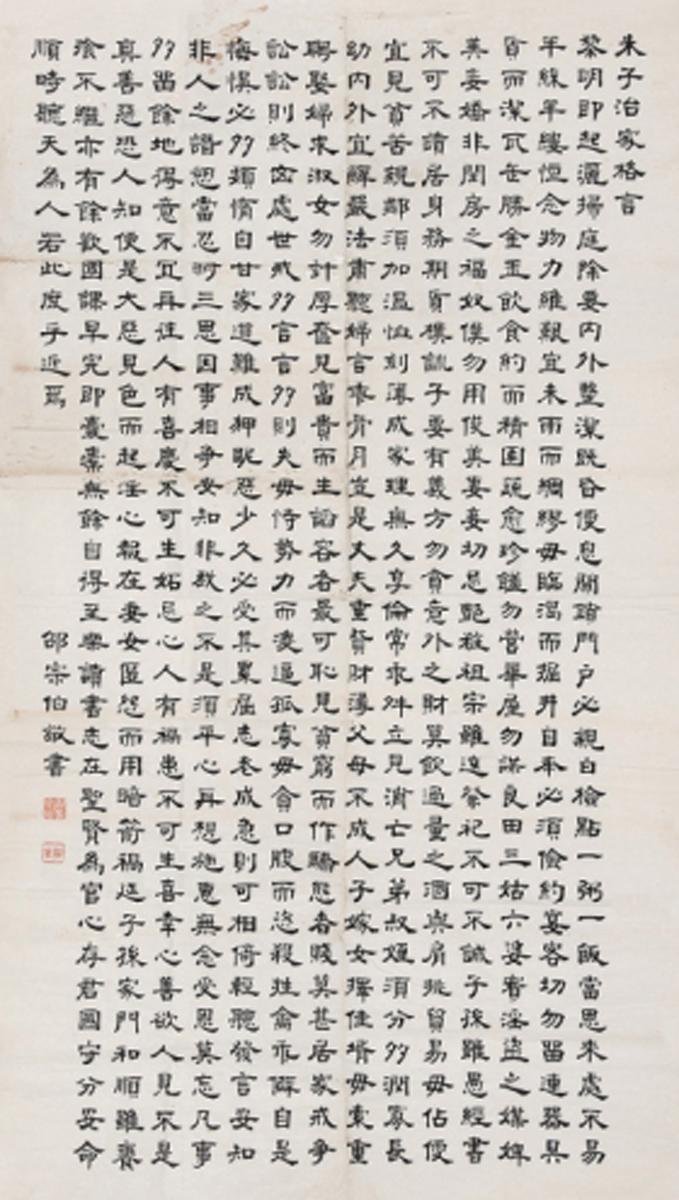 朱子治家格言
黎明即起灑掃庭除要內外整潔既昏便息關鎖門戶必親自檢點一粥一飯當思來處不易
半絲半縷恒念物力維艱宜未雨而綢繆毋臨渴而掘井自奉必須儉約宴客切勿留連器具
質而潔瓦缶勝金玉飲食約而精園蔬愈珍饈勿營華屋勿謀良田三姑六婆實淫盜之媒婢
美妾嬌非閨房之福奴僕勿用俊美妻妾切忌艷妝祖宗雖遠祭祀不可不誠子孫雖愚經書
不可不讀居身務期質樸訓子要有義方勿貪意外之財莫飲過量之酒與肩挑貿易毋佔便
宜見貧苦親鄰須加溫恤刻薄成家理無久享倫常乖舛立見消亡兄弟叔姪須分多潤寡長
幼內外宜辭嚴法肅聽婦言乖骨肉豈是丈夫重貲財薄父母不成人子嫁女擇佳壻毋索重
聘娶婦求淑女勿計厚奩見富貴而生諂容者最可恥見貧窮而作驕態者賤莫甚居家戒爭
訟訟則終凶處世戒多言言多則失毋恃勢力而凌逼孤寡毋貪口腹而恣殺牲禽乖僻自是
悔悞必多頹惰自甘家道難成狎昵惡少久必受其累屈志老成急則可相倚輕聽發言安知
非人之譖愬當忍耐三思因事相爭安知非我之不是須平心再想施惠無念受恩莫忘凡事
多留餘地得意不宜再往人有喜慶不可生妬忌心人有禍患不可生喜幸心善欲人見不是
真善惡恐人知便是大惡見色而起淫心報在妻女匿怨而用暗箭禍延子孫家門和順雖饔
飱不繼亦有餘歡國課早完即囊橐無餘自得至樂讀書志在聖賢為官心存君國守分安命
順時聽天為人若此庶乎近焉
邵宗伯敬書